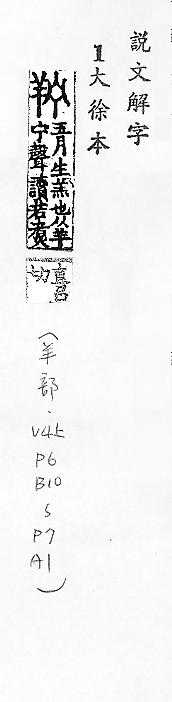 説文解字
1大徐本
羜 五月生羔也从羊
宁聲讀若煑
直呂
切
（羊部．V4上P6B10~P7A1）